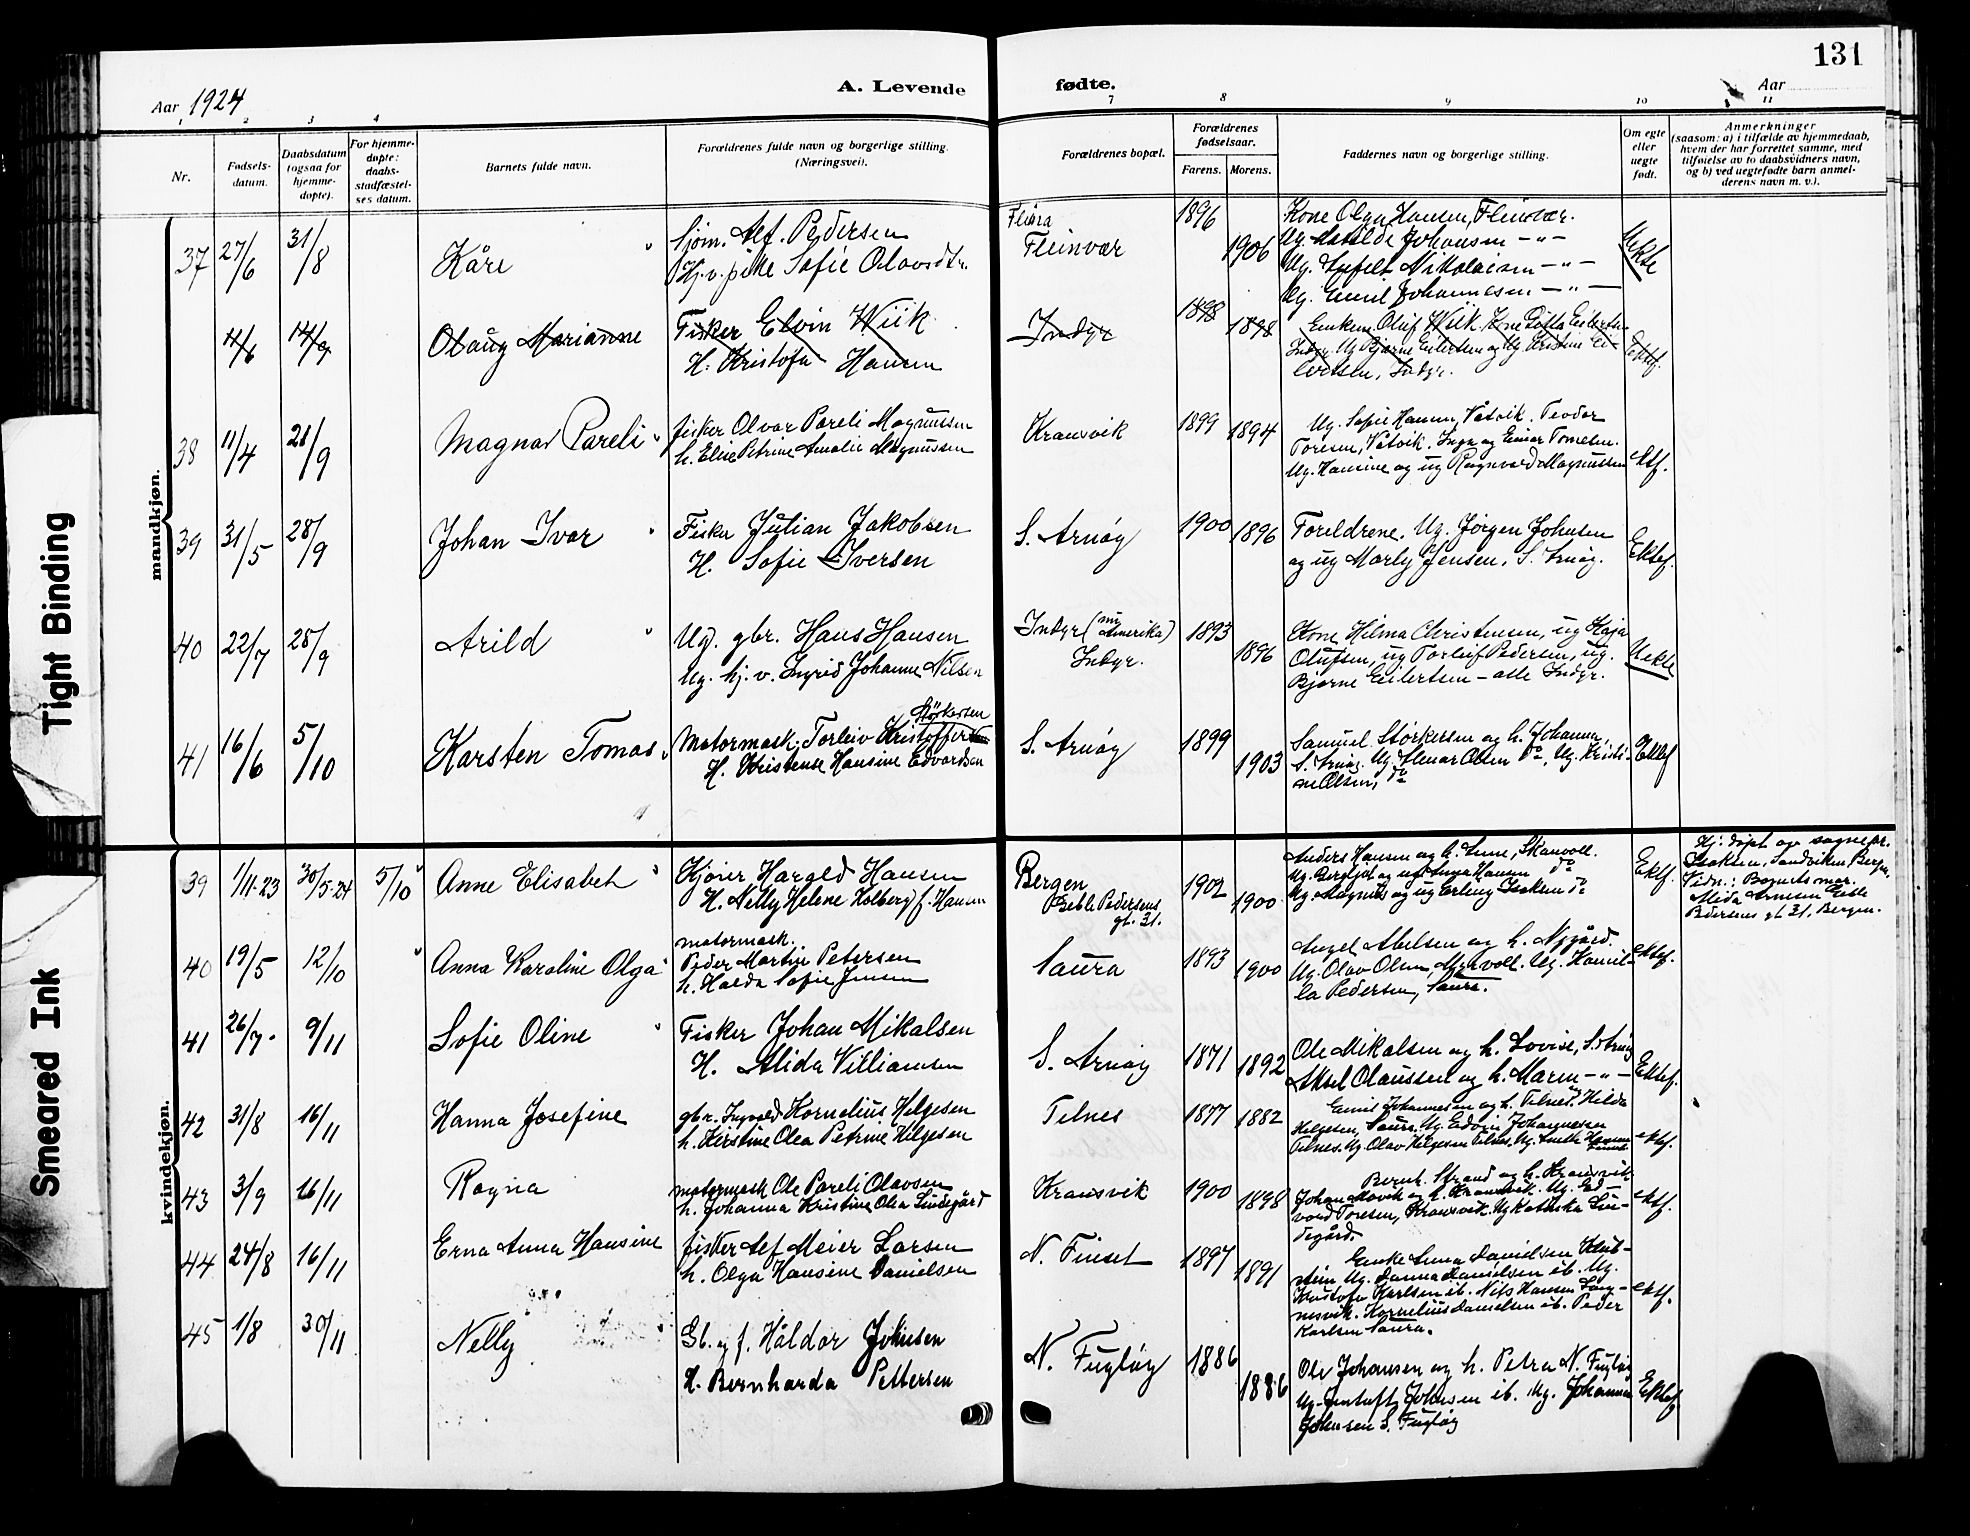 131
Aar 1924
A. Levende fødte.
Aar
1 2 3 4 7 8 9 10 11
Nr.
Fødsels-
datum.
Daabsdatum
(ogsaa for
hjemme-
døpte).
For hjemme-
døpte:
daabs-
stadfæstel-
ses datum.
Barnets fulde navn.
Forældrenes fulde navn og borgerlige stilling.
(Næringsvei).
Forældrenes bopæl.
Forældrenes
fødselsaar.
Farens. Morens.
Faddernes navn og borgerlige stilling.
Om egte
eller
uegte
født.
Anmerkninger
(saasom: a) i tilfælde av hjemmedaab,
hvem der har forrettet samme, med
tilføielse av to daabsvidners navn,
og b) ved uegtefødte barn anmel-
derens navn m. v.).
mandkjøn.
37 27/6 31/8 Kåre
Sjøm. Alf. Pedersen
Hj. v. pike Sofie Olavsdtr.
Fleina
Fleinvær
1896 1906
Kone Olga Hansen, Fleinvær.
Ug. Matilde Johansen - " -
Ug. Nikolaisen - " -
Ug. Emil Johannesen - " -
Uekte
11/6 14/9 Olaug Marianne
Fisker Elvin Wiik
H. Kristofa Hansen
Indyr
1898 1898
Enkem. Oluf Wiik. Kone Gitta Eilertsen
Indyr. Ug Bjarne Eilertsen og Ug. Kristine Ei-
lertsen, Indyr.
Ektef.
38 11/4 21/9 Magnar Pareli
fisker Olvar Pareli Magnussen
h. Elise Petrine Amalie Magnussen
Kransvik
1899 1894
Ug. Sofie Hansen, Våtvik. Teodor
Toresen, Våtvik. Inga og Einar Tomesen.
Ug. Hansine og ug Ragnvald Magnussen
ektf.
39 31/5 28/9 Johan Ivar
Fisker Julian Jakobsen
H. Sofie Iversen
S. Arnøy
1900 1896
Foreldrene. Ug. Jørgen Johnsen
og ug Marly Jensen, S. Arnøy.
Ektef.
40 22/7 28/9 Arild
Ug. gbr. Hans Hansen
Ug. hj. v. Ingrid Johanne Nilsen
Indyr (nu Amerika)
Indyr.
1893 1896
Kone Hilma Christensen, ug Kaja
Olufsen, ug Torleif Pedersen, ug.
Bjarne Eilertsen - alle Indyr.
Uekte
41 16/6 5/10 Karsten Tomas
Størkersen
Motormask. Torleiv Kristoffer
H. Kristense Hansine Edvardsen
S. Arnøy
1899 1903
Samuel Størkersen og h. Johanna
S. Arnøy. Ug. Steinar Olsen do, Ug. Kristi-
ne Olsen, do
Ektef
kvindekjøn.
39 1/11-23 30/5-24 5/10 Anne Elisabet
Kjører Harald Hansen
H. Nelly Helene Holberg f. Hansen
Bergen
Geble Pedersens
gt. 31.
1902 1900
Anders Hansen og h. Anne, Skauvoll.
Ug. Bergljot og ug Inga Hansen do
Ug. Magnus og ug Erling Isaksen do
Ektf.
Hj. døpt av sognepr.
Isaksen, Sandviken, Bergen.
Vidn.: Barnets mor.
Alida Arnesen Geble
Pedersens gt 31, Bergen.
40 19/5 12/10 Anna Karoline Olga
motormask.
Peder Martin Petersen
h. Halda Sofie Jensen
Saura
1893 1900
Angel Abelsen og h. Nygård.
Ug. Olav Olsen, Myrvoll. Ug. Hanil-
la Pedersen, Saura.
ektef.
41 26/7. 9/11 Sofie Oline
Fisker Johan Mikalsen
H. Alida Villiamsen
S. Arnøy
1871 1892
Ole Mikalsen og h. Lovise, S. Arnøy
Aksel Olaussen og h. Maren - " -
Ektef.
42 31/8 16/11 Hanna Josefine
gbr. Ingvald Kornelius Helgesen
h. Kirstine Olea Petrine Helgesen
Telnes
1877 1882
Enis Johannesen og h. Telnes, Hilda
Helgesen, Saura. Ug. Edvin Johannesen
Telnes. Ug Olav Helgesen Telnes. Ug. Hansen
ektf.
43 3/9 16/11 Ragna
motormask Ole Pareli Olavsen
h. Johanna Kristine Olea Lindegård
Kransvik
1900 1898
Bernt Strand og h. Kransvik
Johan Movik og h. Kransvik. Ug. Ed-
vard Toresen, Kransvik. Ug Katinka Lin-
degård.
ektf.
44 24/8 16/11 Erna Anna Hansine
fisker Alf Meier Larsen
h. Olga Hansine Danielsen
N. Finset
1897 1891
Enke Anna Danielsen Klub-
stein Ug. Danna Danielsen ib. Ug.
Kristofa Karlsen ib. Nils Hansen Lang-
nesvik. Kornelius Danielsen ib. Peder
Karlsen Saura.
ektf.
45 1/8 30/11 Nelly
Gb. og f. Håldor Johnsen
H. Bernharda Pettersen
N. Fugløy
1886 1886
Ole Johansen og h. Petra N. Fugløy
Ug. Gustaft Johnsen ib. Ug. Johannes
Johnsen S. Fugløy
Ektef
Tight Binding
Smeared Ink